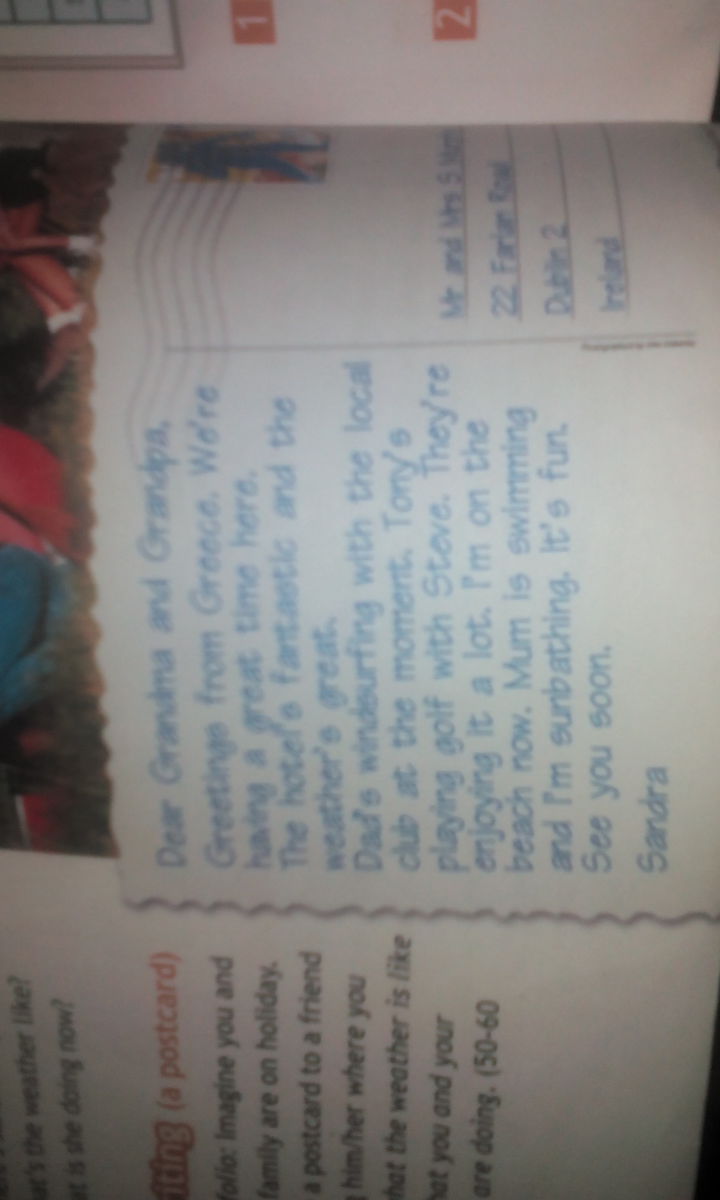 1
2
Dear Grandma and Grandpa,
Greetings from Greece. We're
having a great time here.
The hotel's fantastic and the
weather's great.
Dad's windsurfing with the local
club at the moment. Tony's
playing golf with Steve. They're
enjoying it a lot. I'm on the
beach now. Mum is swimming
and I'm sunbathing. It's fun.
See you soon.
Sandra
Mr and Mrs S
22 Road
Dublin 2
Ireland
the weather like?
is she doing now?
(a postcard)
folio: Imagine you and
family are on holiday.
a postcard to a friend
him/her where you
the weather is like
you and your
are doing. (50-60